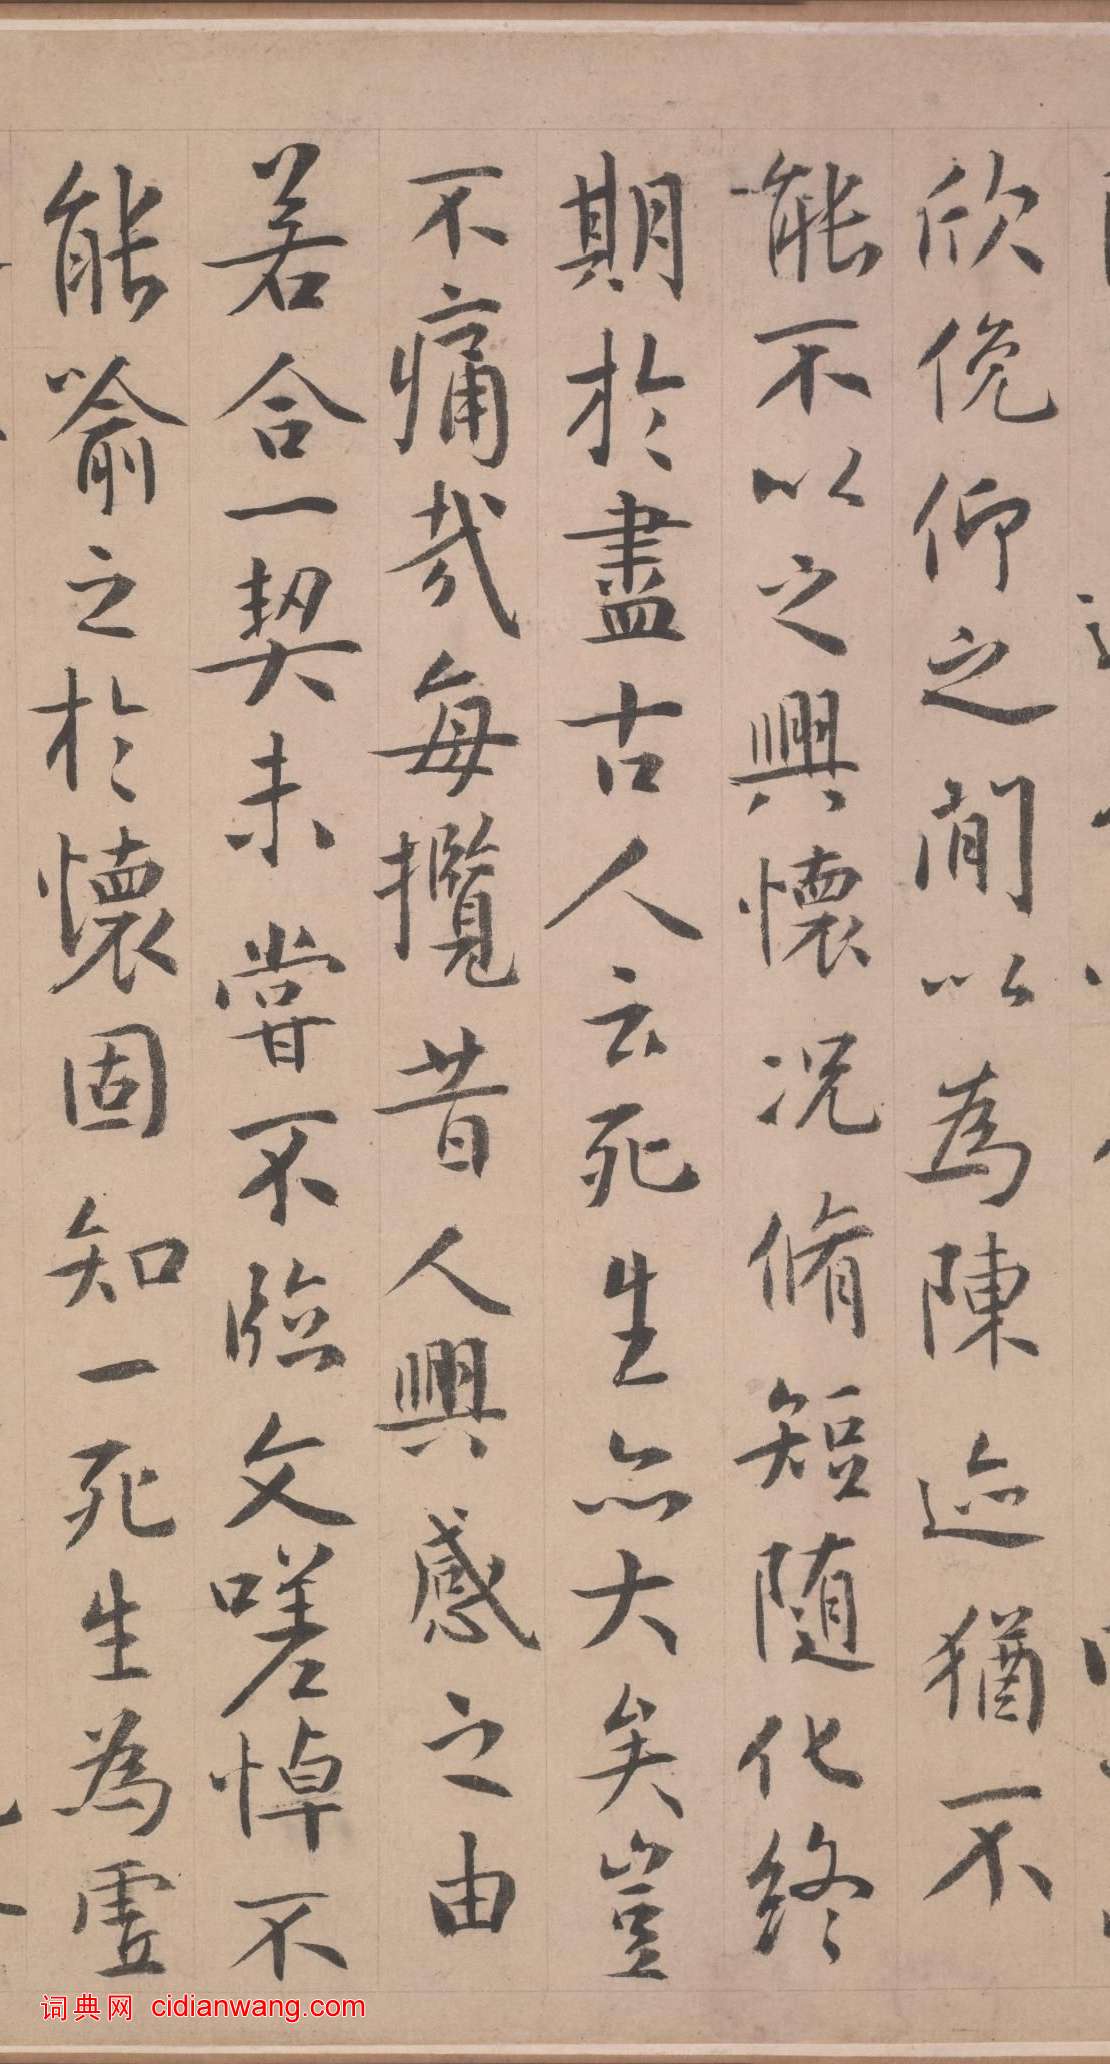 欣俛仰之間以為陳迹猶不
能不以之興懷況脩短隨化終
期於盡古人云死生亦大矣豈
不痛哉每攬昔人興感之由
若合一契未嘗不臨文嗟悼不
能喻之於懷固知一死生為虛
词典网 cidianwang.com